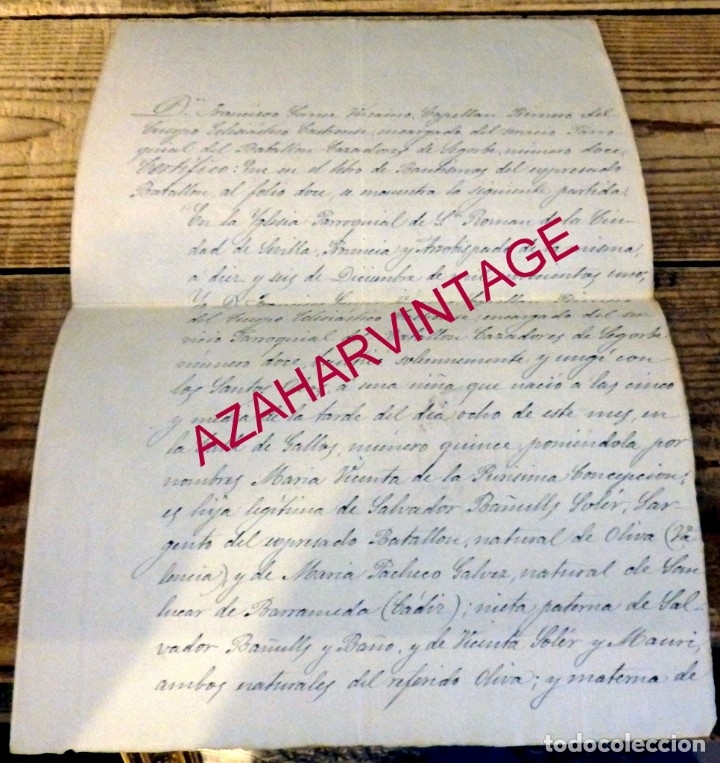 Dn. Francisco Viscaino, Capellan Primero del
Cuerpo Eclesiástico Castrense, encargado del servicio Parro
quial del Batallon Cazadores de Segorbe, número doce,
Certifico: Que en el libro de Bautismos del expresado
Batallon, al folio doce, se encuentra la siguiente partida:
"En la Yglesia Parroquial de Sn. Roman de la Ciu
dad de Sevilla, Provincia y Arzobispado de la misma,
a diez y seis de Diciembre de mil novecientos uno;
Yo D. Francisco Primero
del Cuerpo Eclesiástico encargado del ser
vicio Parroquial Batallon Cazadores de Segorbe
número doce, solemnemente y ungí con
los Santos a una niña que nació a las cinco
y media de la tarde del dia ocho de este mes, en
la de Gallos, número quince, poniéndola por
nombres Maria Vicenta de la Purisima Concepcion;
es hija legítima de Salvador Bañulls Solér, Sar
gento del expresado Batallon, natural de Oliva (Va
lencia) y de Maria Pacheco Galvez, natural de San
lucar de Barrameda (Cádiz); nieta paterna de Sal
vador Bañulls y Baño, y de Vicenta Solér y Mauri,
ambos naturales del referido Oliva; y materna de
AZAHARVINTAGE
todocoleccion